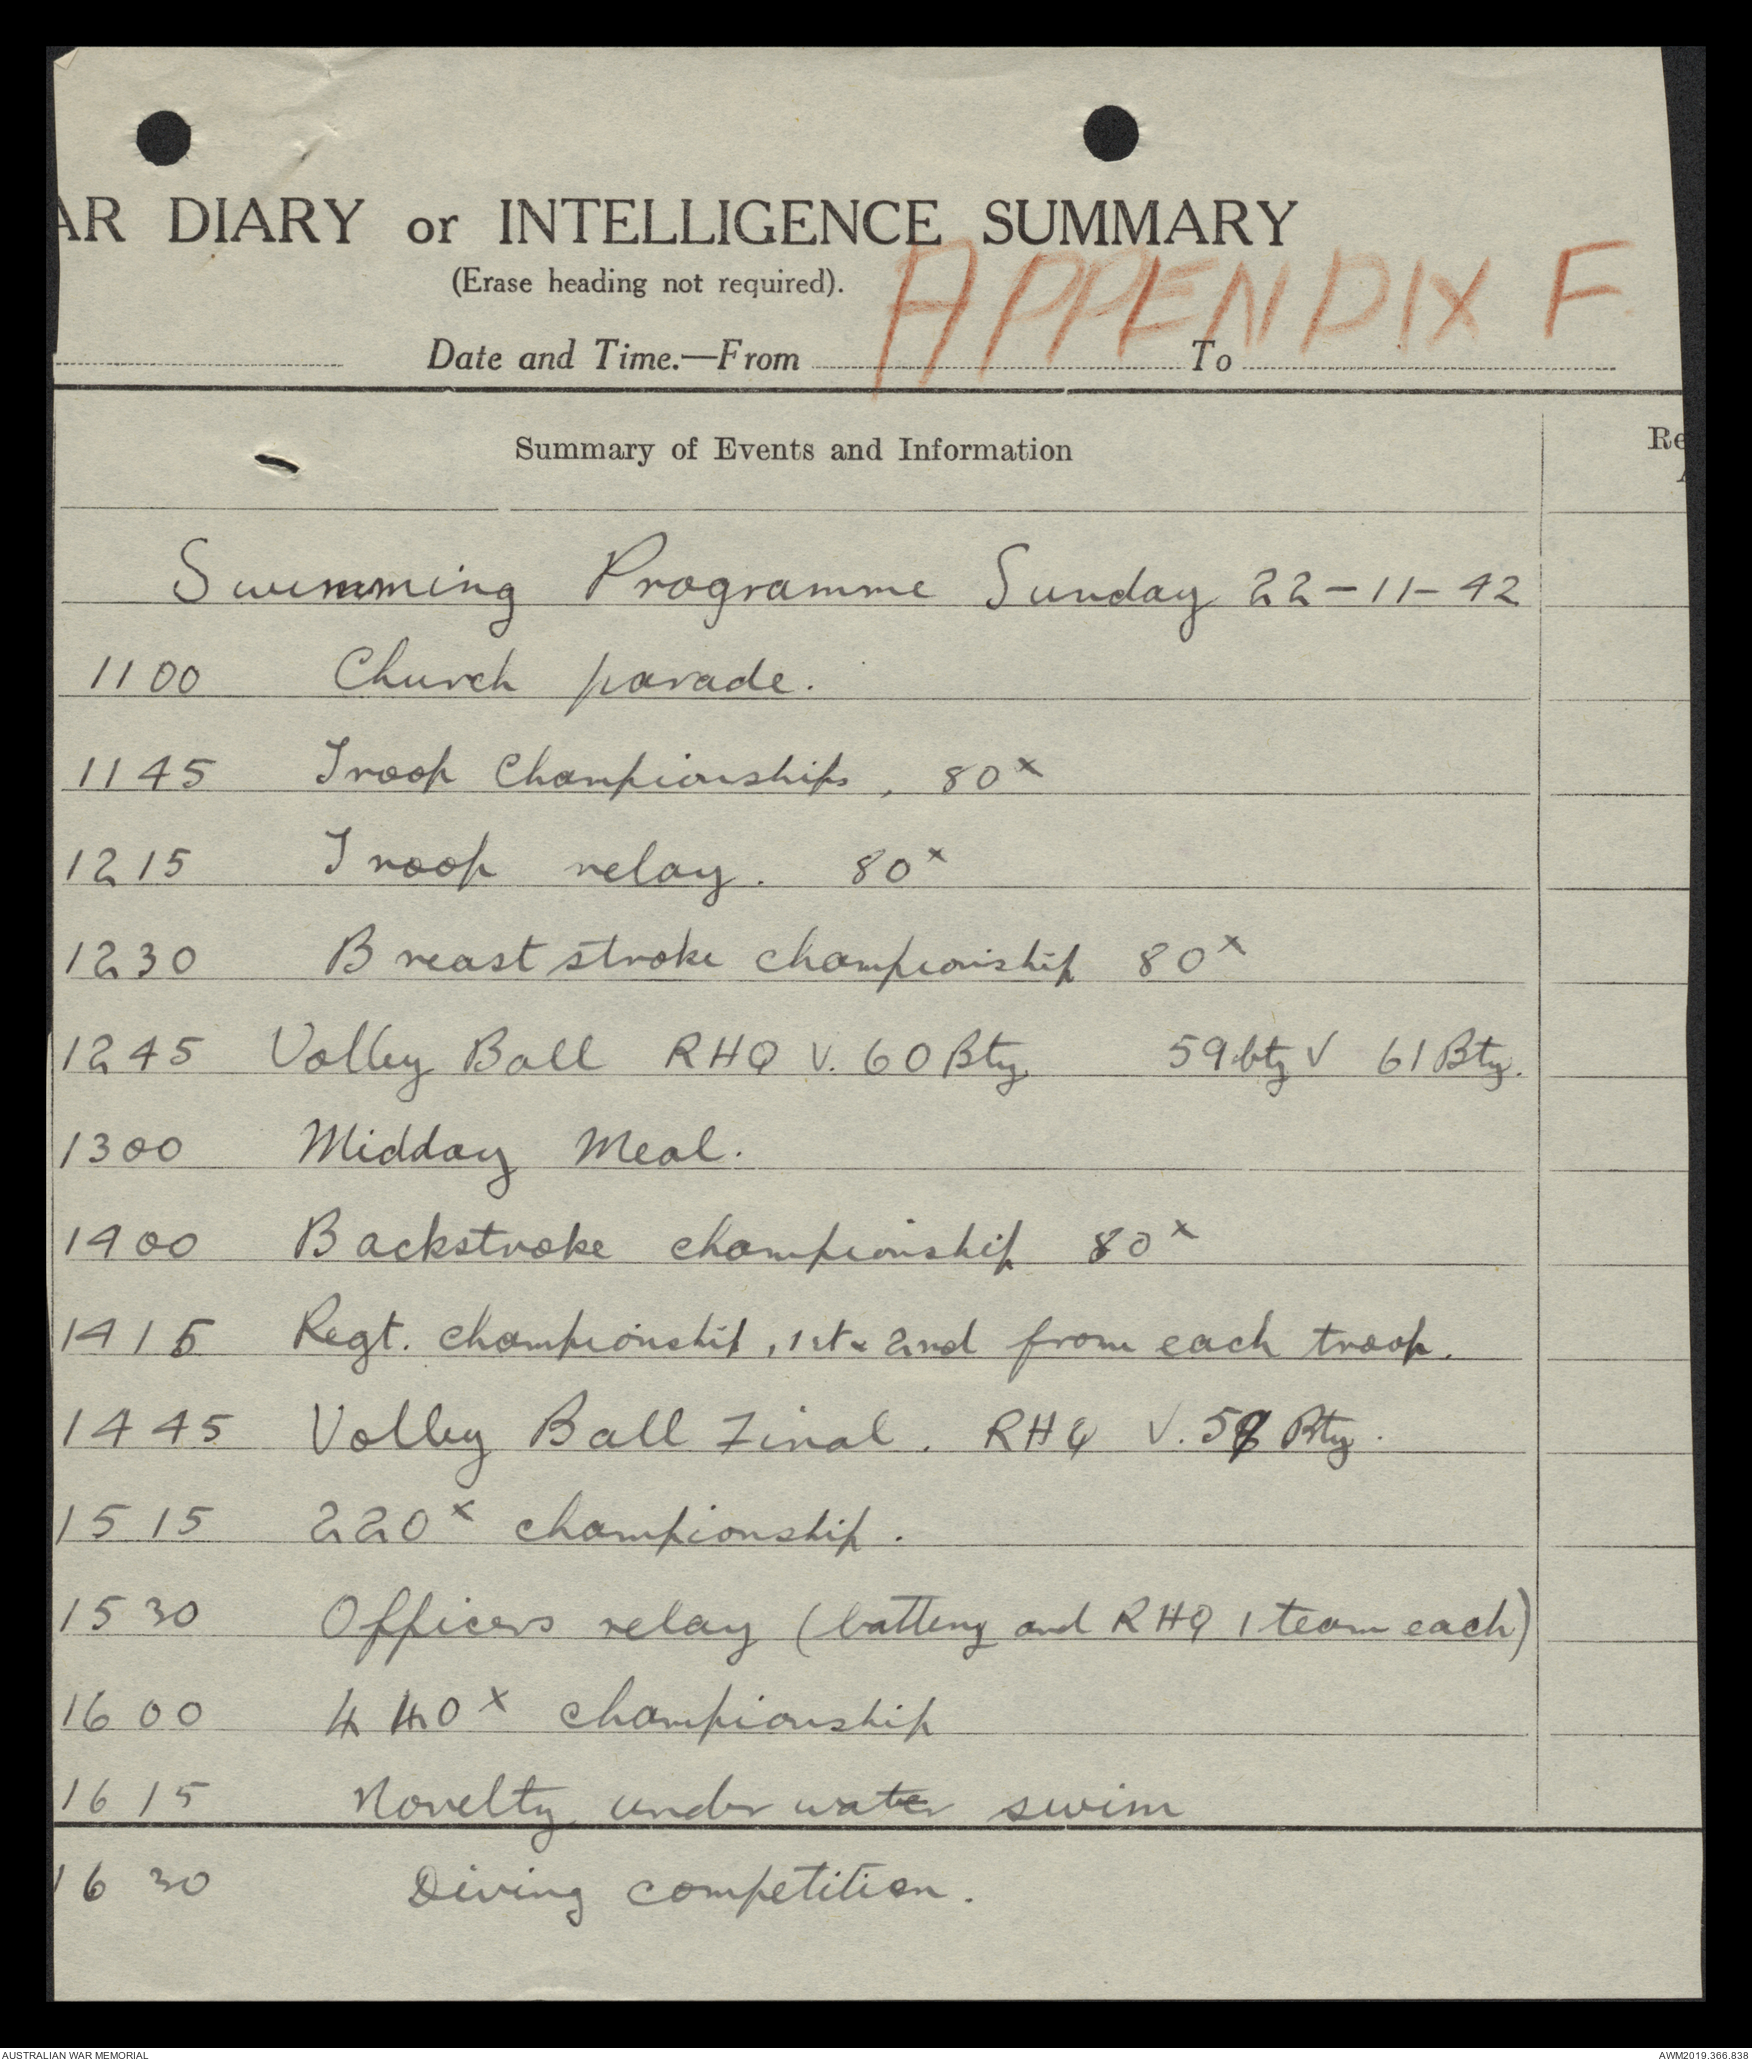 AR DIARY or INTELLIGENCE SUMMARY
(Erase heading not required).
APPENDIX F.
Date and Time.—From To
Summary of Events and Information
Re
Swimming Programme Sunday 22-11-42
1100 Church parade.
1145 Troop Championships, 80x
1215 Troop relay. 80x
1230 Breast stroke championship 80x
1245 Volley Ball RHQ v. 60 Bty 59 bty V 61 Bty.
1300 Midday Meal.
1400 Backstroke championship 80x
1415 Regt. championship, 1st & 2nd from each troop.
1445 Volley Ball Final. RHQ V. 59 Bty.
1515 220x championship.
1530 Officers relay (battery and RHQ 1 team each)
1600 440x championship
1615 Novelty under water swim
1630 Diving competition.
AUSTRALIAN WAR MEMORIAL AWM2019.366.838